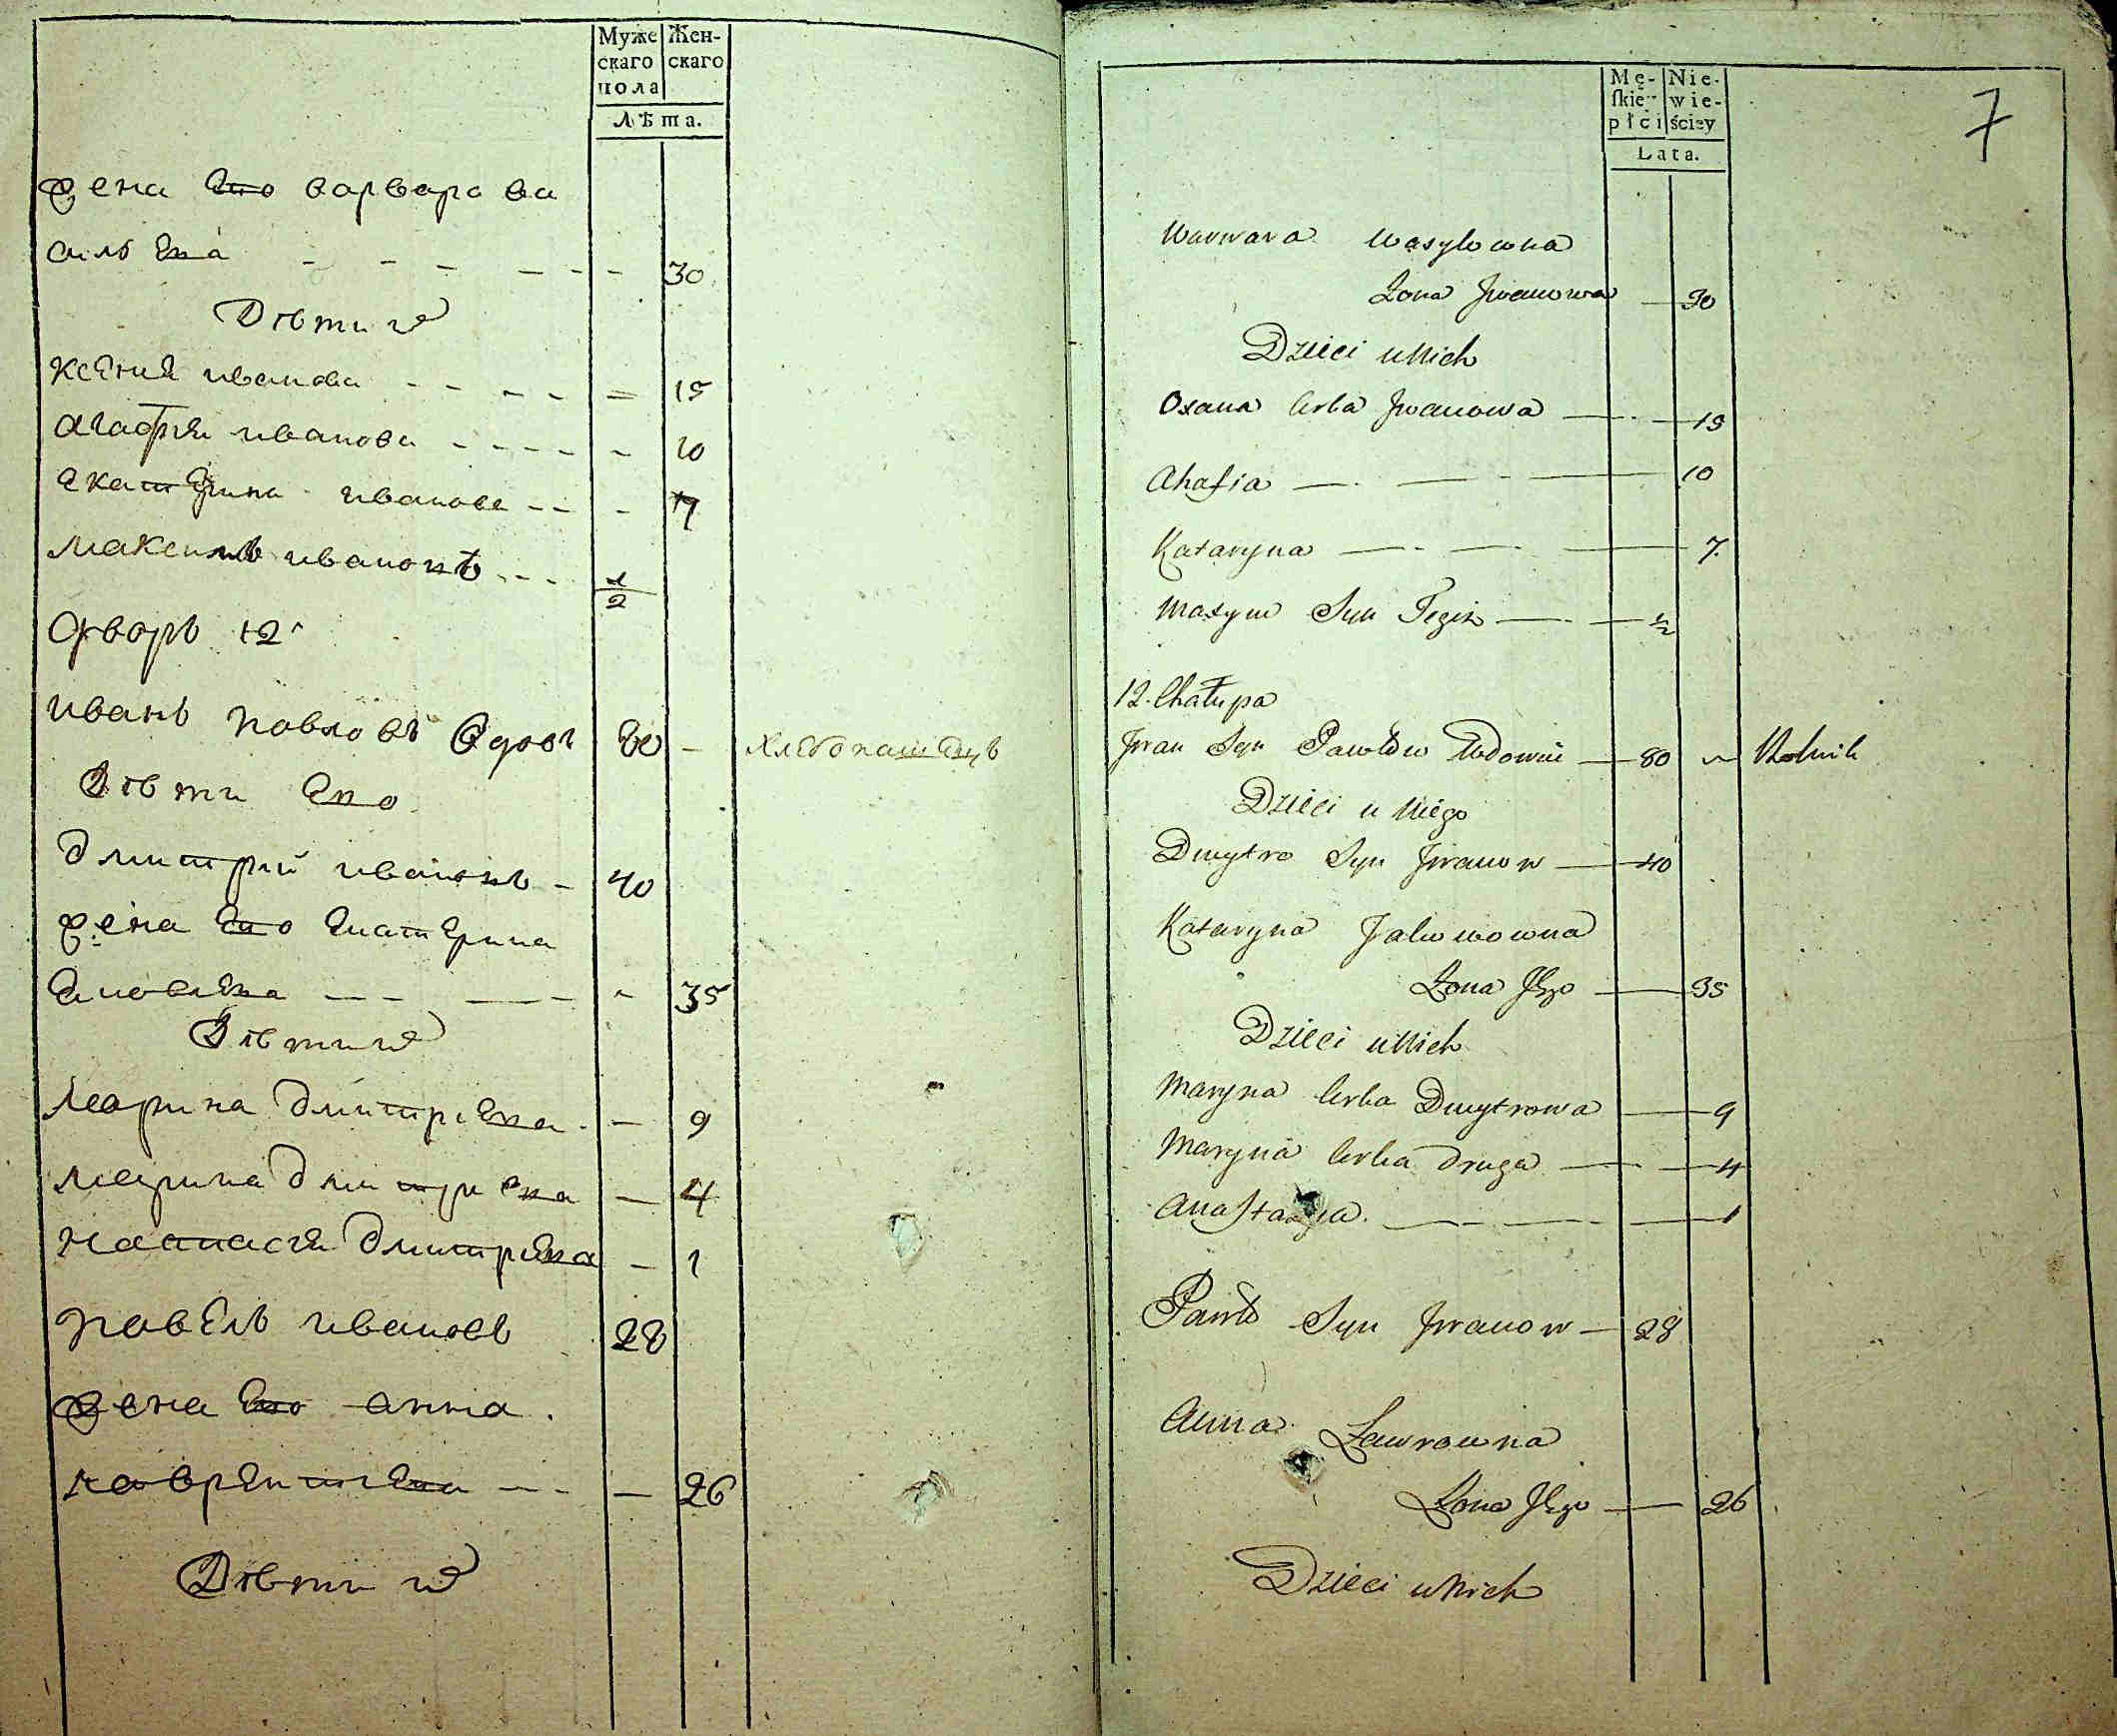 Муже Жен-
скаго скаго
пола
Лѣта.
жена Его варвара ва
силѣвна 30
Дѣти их
Ксения иванова 15
агафия иванова 10
екатерина иванова 7
максимъ ивановъ 1/2
Дворъ 12
иванъ павловъ вдовъ 80 хлебопашецъ
Дѣти Его
дмитрий ивановъ 40
жена Его Екатерина
35
Дѣти их
Марина дмитриевна 9
марина дмитриевна 4
настасия дмитриевна 1
павелъ ивановъ 28
жена Его анна
лаврентиевна 26
Дѣти их
Mę- Nie-
ſkiey wie-
płci ściey
Lata.
7
Warwara Wasylowna
Żona Jwanowa 30
Dzieci u Nich
Oxana Corka Jwanowa 15
Ahafia 10
Kataryna 7
Maxym Syn Tegiż 1/2
12. Chałupa
Jwan Syn Pawłow Wdowiec 80 Rolnik
Dzieci u Niego
Dmytro Syn Jwanow 40
Kataryna
Żona Jego 35
Dzieci u Nich
Maryna Corka Dmytrowa 9
Maryna Corka Druga 4
Anastazya 1
Pawło Syn Jwanow 28
Anna Ławrowna
Żona Jego 26
Dzieci u Nich